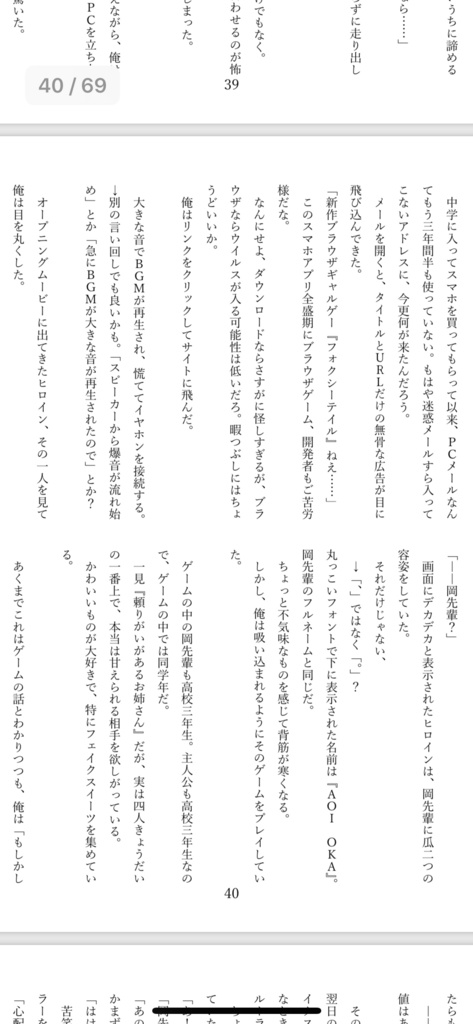 うちに諦める
なら……」
らずに走り出し
けでもなく。
わせるのが怖
しまった。
えながら、俺、
PCを立ち
驚いた。
40 / 69
39
中学に入ってスマホを買ってもらって以来、PCメールなん
てもう三年間半も使っていない。もはや迷惑メールすら入って
こないアドレスに、今更何が来たんだろう。
メールを開くと、タイトルとURLだけの無骨な広告が目に
飛び込んできた。
「新作ブラウザギャルゲー『フォクシーテイル』ねえ……」
このスマホアプリ全盛期にブラウザゲーム、開発者もご苦労
様だな。
なんにせよ、ダウンロードならさすがに怪しすぎるが、ブラ
ウザならウイルスが入る可能性は低いだろ。暇つぶしにはちょ
うどいいか。
俺はリンクをクリックしてサイトに飛んだ。
大きな音でBGMが再生され、慌ててイヤホンを接続する。
↓別の言い回しでも良いかも。「スピーカーから爆音が流れ始
め」とか「急にBGMが大きな音が再生されたので」とか?
オープニングムービーに出てきたヒロイン、その一人を見て
俺は目を丸くした。
「――岡先輩?」
画面にデカデカと表示されたヒロインは、岡先輩に瓜二つの
容姿をしていた。
それだけじゃない、
↓「、」ではなく「。」?
丸っこいフォントで下に表示された名前は『AOI OKA』。
岡先輩のフルネームと同じだ。
ちょっと不気味なものを感じて背筋が寒くなる。
しかし、俺は吸い込まれるようにそのゲームをプレイしてい
た。
ゲームの中の岡先輩も高校三年生。主人公も高校三年生なの
で、ゲームの中では同学年だ。
一見『頼りがいがあるお姉さん』だが、実は四人きょうだい
の一番上で、本当は甘えられる相手を欲しがっている。
かわいいものが大好きで、特にフェイクスイーツを集めてい
る。
あくまでこれはゲームの話とわかりつつも、俺は「もしかし
40
たらも
値はあ
その
翌日の
イヤス
なさき
ルーラ
ちょ
てい
「あ!
「岡先
「あの
かまず
「はは
苦笑
ラーを
「心配